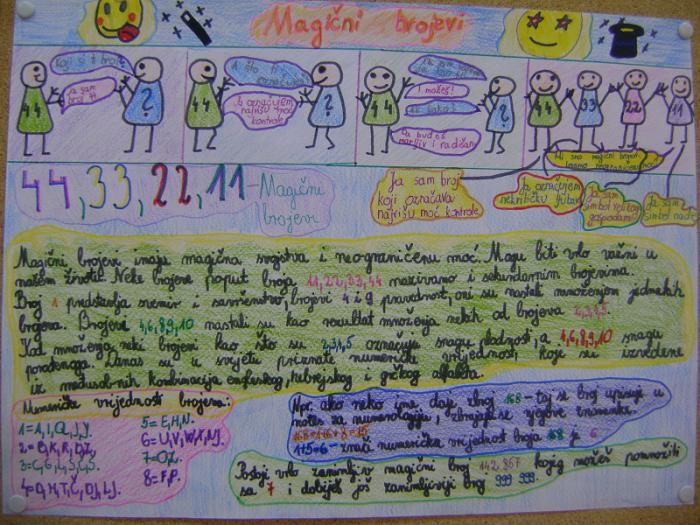 Magični brojevi
Koji si ti broj?
Ja sam
broj 44
A što ti
označuješ?
Ja označujem
najvišu moć
kontrole
I možeš!
Kako?
Da budeš
marljiv i radišan
44
?
44
?
44
?
44
33
22
11
Mi smo magični brojevi
44, 33, 22, 11 - Magični
brojevi
Ja sam broj
koji označava
najvišu moć kontrole
Ja označujem
nekritičku ljubav
Ja sam
simbol
gospodara
Ja sam
simbol nade
Magični brojevi imaju magična svojstva i neograničenu moć. Mogu biti vrlo važni u
našem životu. Neke brojeve poput broja 11, 22, 33, 44 nazivamo i sekundarnim brojevima.
Broj 1 predstavlja svemir i savršenstvo, brojevi 4 i 9 pravednost, oni su nastali množenjem jednakih
brojeva. Brojevi 4,6,8,9,10 nastali su kao rezultat množenja nekih od brojeva 2,3,4,5.
Kod množenja neki brojevi kao što su 2,3,4,5 označuju snagu plodnosti, a 4,6,8,9,10 snagu
porođenoga. Danas su u svijetu priznate numeričke vrijednosti koje su izvedene
iz međusobnih kombinacija engleskog, hebrejskog i grčkog alfabeta.
Numeričke vrijednosti brojeva:
1=A,I,Q,J,Y.
2=B,K,R,DŽ,
3=C,G,L,S,Š.
4=D,M,T,Č,DJ,LJ.
5=E,H,N.
6=U,V,W,X,NJ.
7=O,Z.
8=F,P.
Npr. ako neko ime daje zbroj 168 - taj se broj upisuje u
notes za numerologiju, zbrajaju se njegove znamenke.
168=1+6+8=15
1+5=6 - znači numerička vrijednost broja 168 je 6
Postoji vrlo zanimljiv magični broj 142 857 kojeg možeš pomnožiti
sa 7 i dobiješ još zanimljiviji broj 999 999.